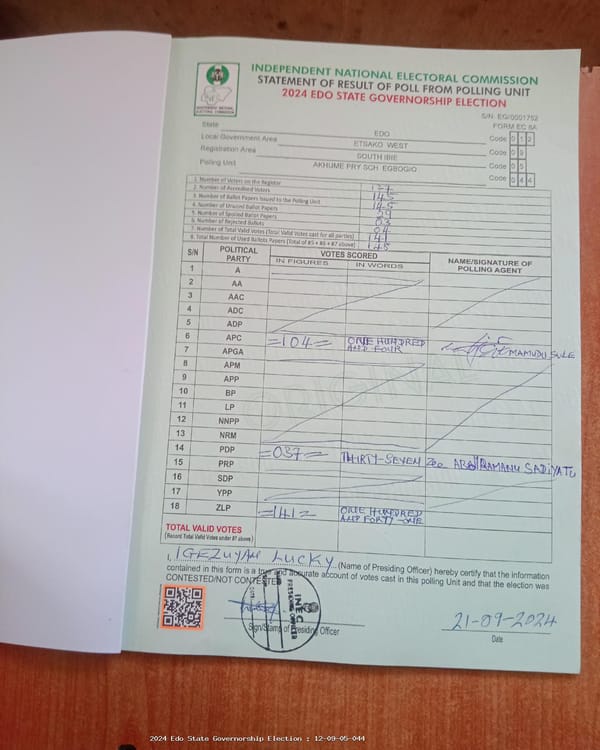 INDEPENDENT NATIONAL ELECTORAL COMMISSION
STATEMENT OF RESULT OF POLL FROM POLLING UNIT
2024 EDO STATE GOVERNORSHIP ELECTION
S/N: EG/0001752
FORM EC 8A
State EDO Code 0 1 2
Local Government Area ETSAKO WEST Code 0 9
Registration Area SOUTH IBIE Code 0 5
Polling Unit AKHUME PRY SCH EGBOGIO Code 0 4 4
1. Number of Voters on the Register
2. Number of Accredited Voters 145
3. Number of Ballot Papers Issued to the Polling Unit
4. Number of Unused Ballot Papers
5. Number of Spoiled Ballot Papers 03
6. Number of Rejected Ballots 04
7. Number of Total Valid Votes (Total Valid Votes cast for all parties) 141
8. Total Number of Used Ballots Papers (Total of #5 + #6 + #7 above) 145
S/N POLITICAL PARTY VOTES SCORED NAME/SIGNATURE OF POLLING AGENT
IN FIGURES IN WORDS
1 A
2 AA
3 AAC
4 ADC
5 ADP
6 APC =104= ONE HUNDRED AND FOUR MAMUDU SULE
7 APGA
8 APM
9 APP
10 BP
11 LP
12 NNPP
13 NRM
14 PDP =037= THIRTY-SEVEN SADIYATU
15 PRP
16 SDP
17 YPP
18 ZLP =141= ONE HUNDRED AND FORTY-ONE
TOTAL VALID VOTES
(Record Total Valid Votes under #7 above)
I, IGEZUYAH LUCKY (Name of Presiding Officer) hereby certify that the information
contained in this form is a true and accurate account of votes cast in this polling Unit and that the election was
CONTESTED/NOT CONTESTED
INEC
PRESIDING OFFICER
Sign/Stamp of Presiding Officer
21-09-2024
Date
2024 Edo State Governorship Election : 12-09-05-044